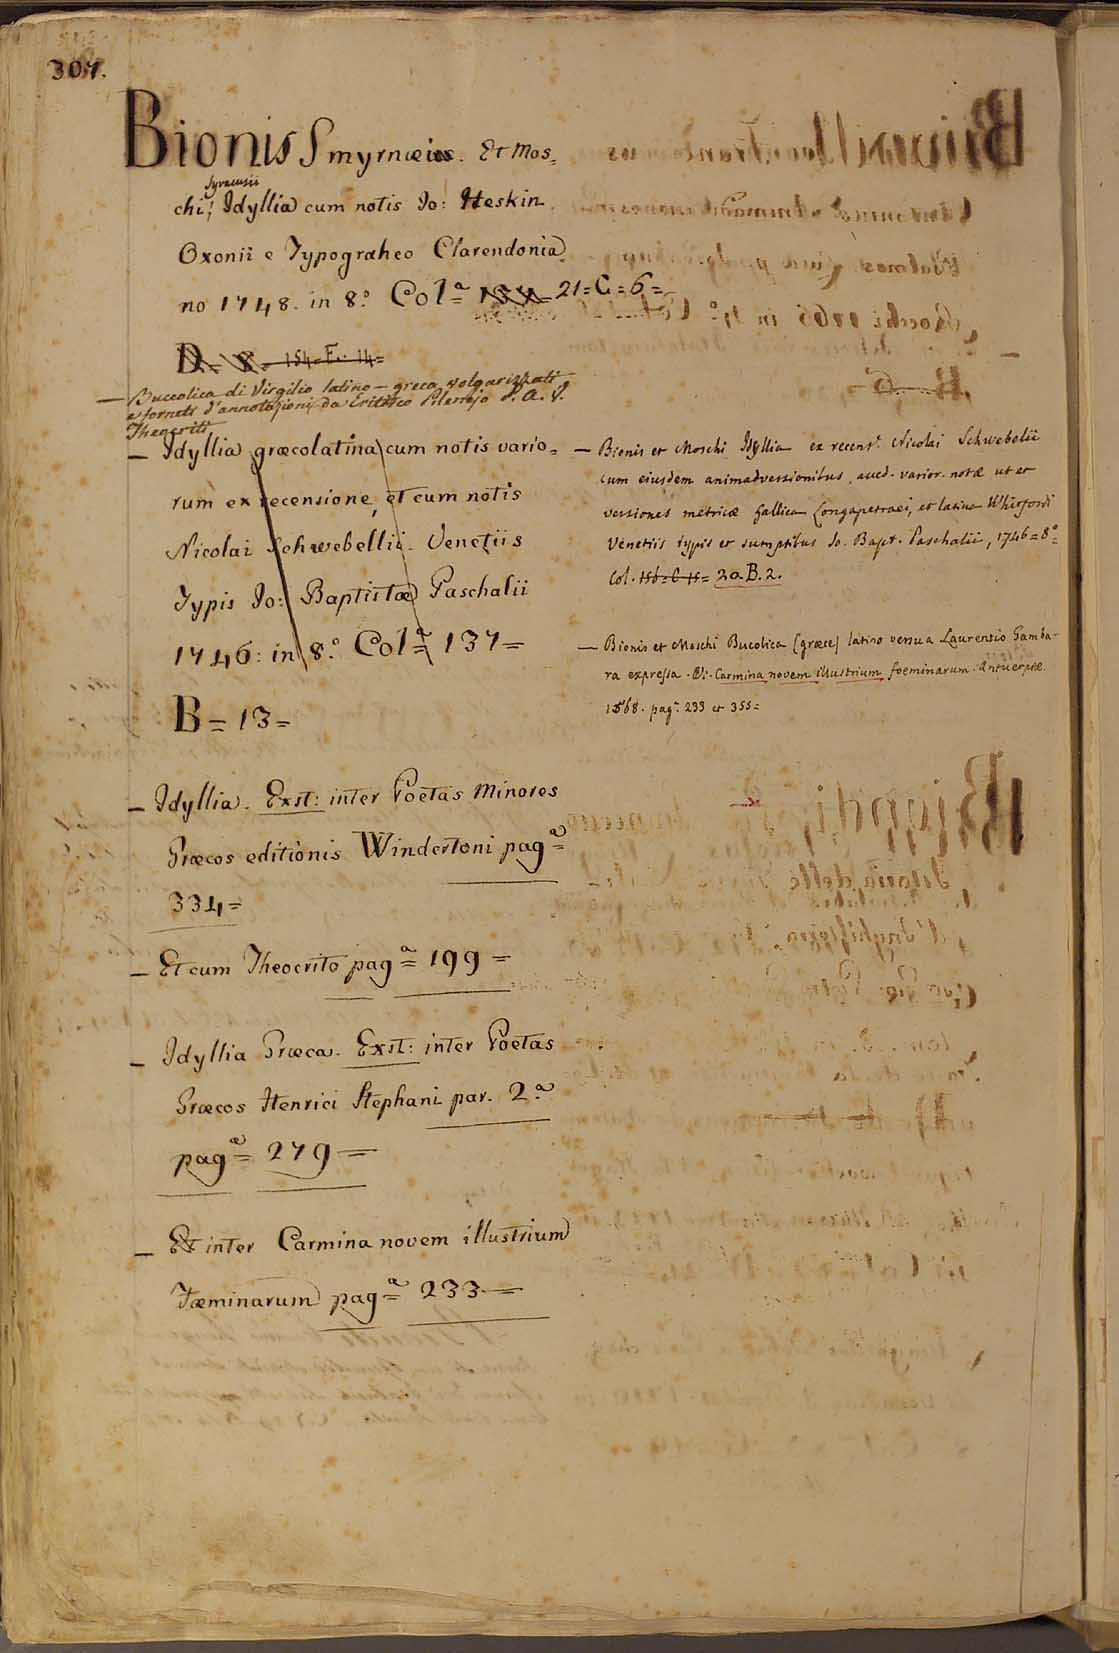 307.
Bionis Smyrnæi. Et Mos=
Syracusii
chi; Idyllia cum notis Jo: Heskin
Oxonii e Typograheo Clarendonia
no 1748. in 8.° Col.ª 137= 21=C=6=
D= 8= 154=F. 14=
— Buccolica di Virgilio latino-greca volgarizzati
e forneti d'annotazioni da Eritisco Pilenejo P. A. V.
Theocriti
— Idyllia græcolatina cum notis vario=
rum ex recensione, et cum notis
Nicolai Schwebellii. Venetiis
Typis Jo: Baptistæ Paschalii
1746: in 8.° Col.ª 137=
B=13=
— Idyllia. Exst: inter Poetas Minores
Græcos editionis Windertoni pag.ª
334=
— Et cum Theocrito pag.ª 199=
— Idyllia Græca. Exst: inter Poetas
Græcos Henrici Stephani par. 2.ª
pag.ª 279=
— Et inter Carmina novem illustrium
Fæminarum pag.ª 233=
— Bionis et Moschi Idyllia ex recens.e Nicolai Schwebelii
cum eiusdem animadversionibus, aued. varior. notæ ut et
versiones metricæ gallica Longapetraei, et latina Whitfordi
Venetiis typis et sumptibus Jo. Bapt. Paschalii, 1746=8°=
Col. 156=C 15= 20.B.2.
— Bionis et Moschi Bucolica (græce) latino versu a Laurentio Gamba-
ra expressa. Carmina novem illustrium foeminarum. Antuerpiæ
1568. pag. 233 et 355=